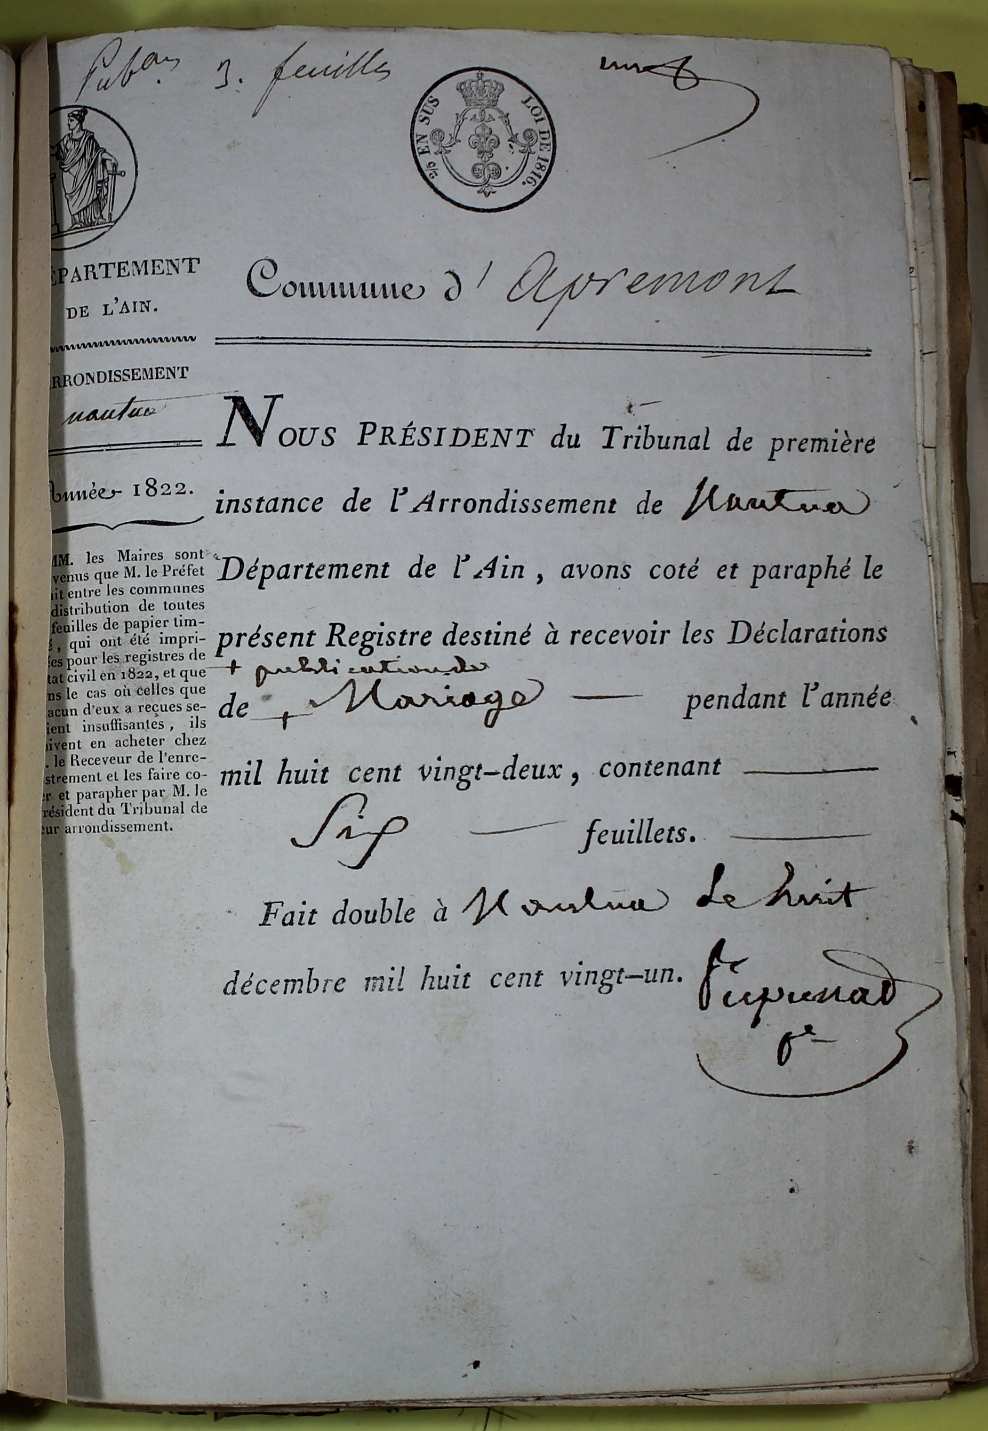 3. feuilles
EN SUS LOI DE 1816.
ÉPARTEMENT
DE L'AIN.
RRONDISSEMENT
nantua
Année 1822.
MM. les Maires sont
venus que M. le Préfet
it entre les communes
distribution de toutes
feuilles de papier tim-
é, qui ont été impri-
es pour les registres de
tat civil en 1822, et que
ns le cas où celles que
acun d'eux a reçues se-
ient insuffisantes, ils
ivent en acheter chez
. le Receveur de l'enre-
strement et les faire co-
er et parapher par M. le
résident du Tribunal de
eur arrondissement.
Commune d' Apremont
NOUS PRÉSIDENT du Tribunal de première
instance de l'Arrondissement de Nantua
Département de l'Ain, avons coté et paraphé le
présent Registre destiné à recevoir les Déclarations
+ publication de
de + Mariage — pendant l'année
mil huit cent vingt-deux, contenant —
Six — feuillets. —
Fait double à Nantua Le huit
décembre mil huit cent vingt-un.